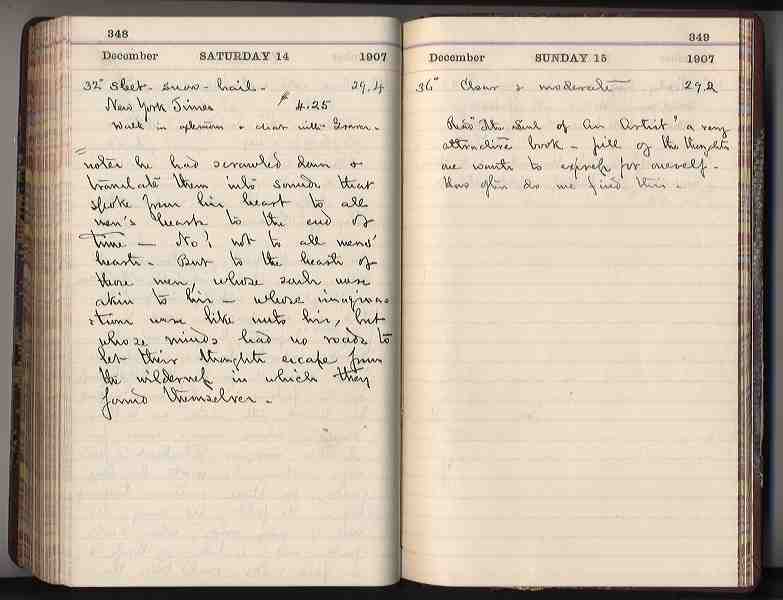 348
December SATURDAY 14 1907
32° Sleet - snow - hail - 29.4
New York Times 4.25
Walk in afternoon &  with
notes he had scrawled down &
translate them into sounds that
spoke from his heart to all
men's hearts to the end of
time — No! not to all mens'
hearts. But to the hearts of
those men, whose souls were
akin to his — whose imagina=
=tions were like unto his, but
whose minds had no roads to
let their thoughts escape from
the wilderness in which they
found themselves -
349
December SUNDAY 15 1907
36° Clear & moderate 29.2
Read "The Soul of an Artist" a very
attractive book - full of the thoughts
one wants to express for oneself -
How often do we find this -